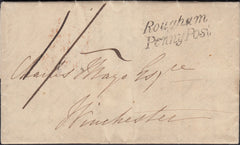 Rougham
Penny Post
1/1
Charles Mayo Esqre
Winchester